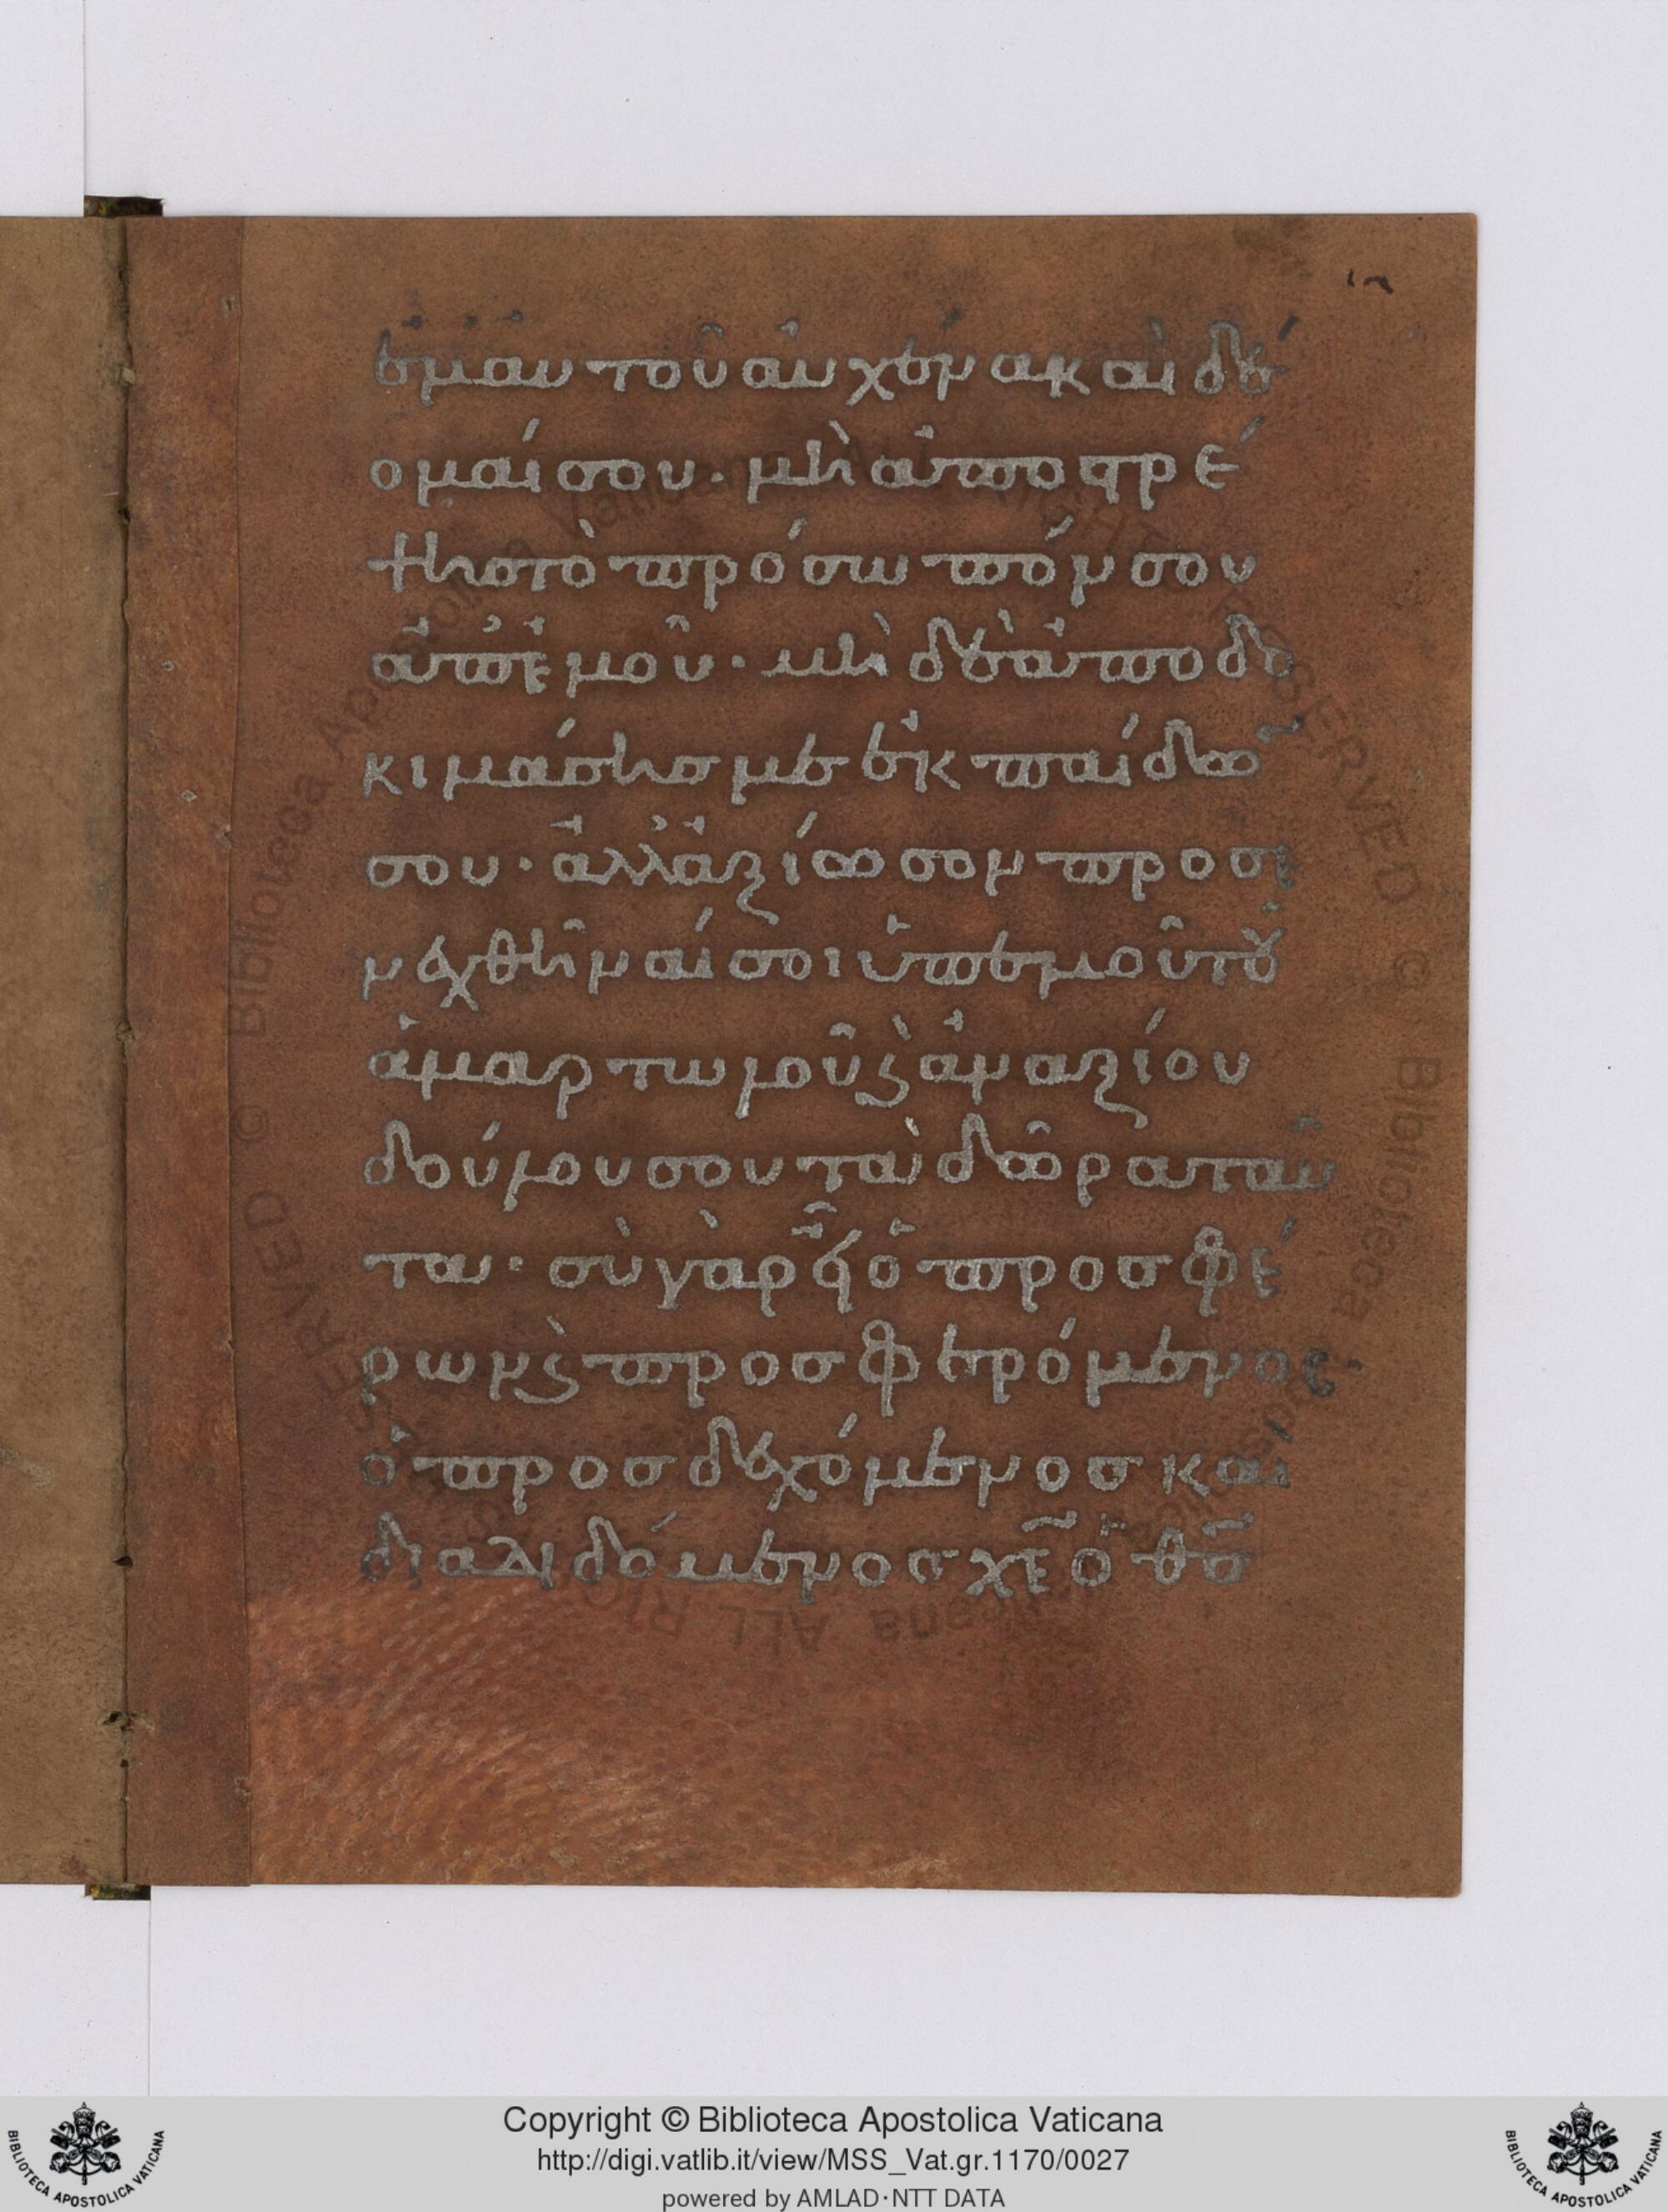 ἐμαυτοῦ αὐχένα καὶ δέ
ομαί σου· μὴ ἀποστρέ
ψῃς τὸ πρόσωπόν σου
ἀπ' ἐμοῦ· μὴ δὲ ἀποδο
κιμάσῃς με ἐκ παίδω̃
σου· ἀλλ' ἀξίωσον προσε
νεχθῆναί σοι ὑπ' ἐμοῦ τοῦ
ἁμαρτωλοῦ ϗ ἀναξίου
δούλου σου τὰ δῶρα ταῦ
τα· σὺ γὰρ εἶ ὁ προσφέ
ρων ϗ προσφερόμενος
ὁ προσδεχόμενος καὶ
διαδιδόμενος χ̅ε̅ ὁ θ̅ς̅
Copyright © Biblioteca Apostolica Vaticana
http://digi.vatlib.it/view/MSS_Vat.gr.1170/0027
powered by AMLAD·NTT DATA
BIBLIOTECA APOSTOLICA VATICANA
BIBLIOTECA APOSTOLICA VATICANA